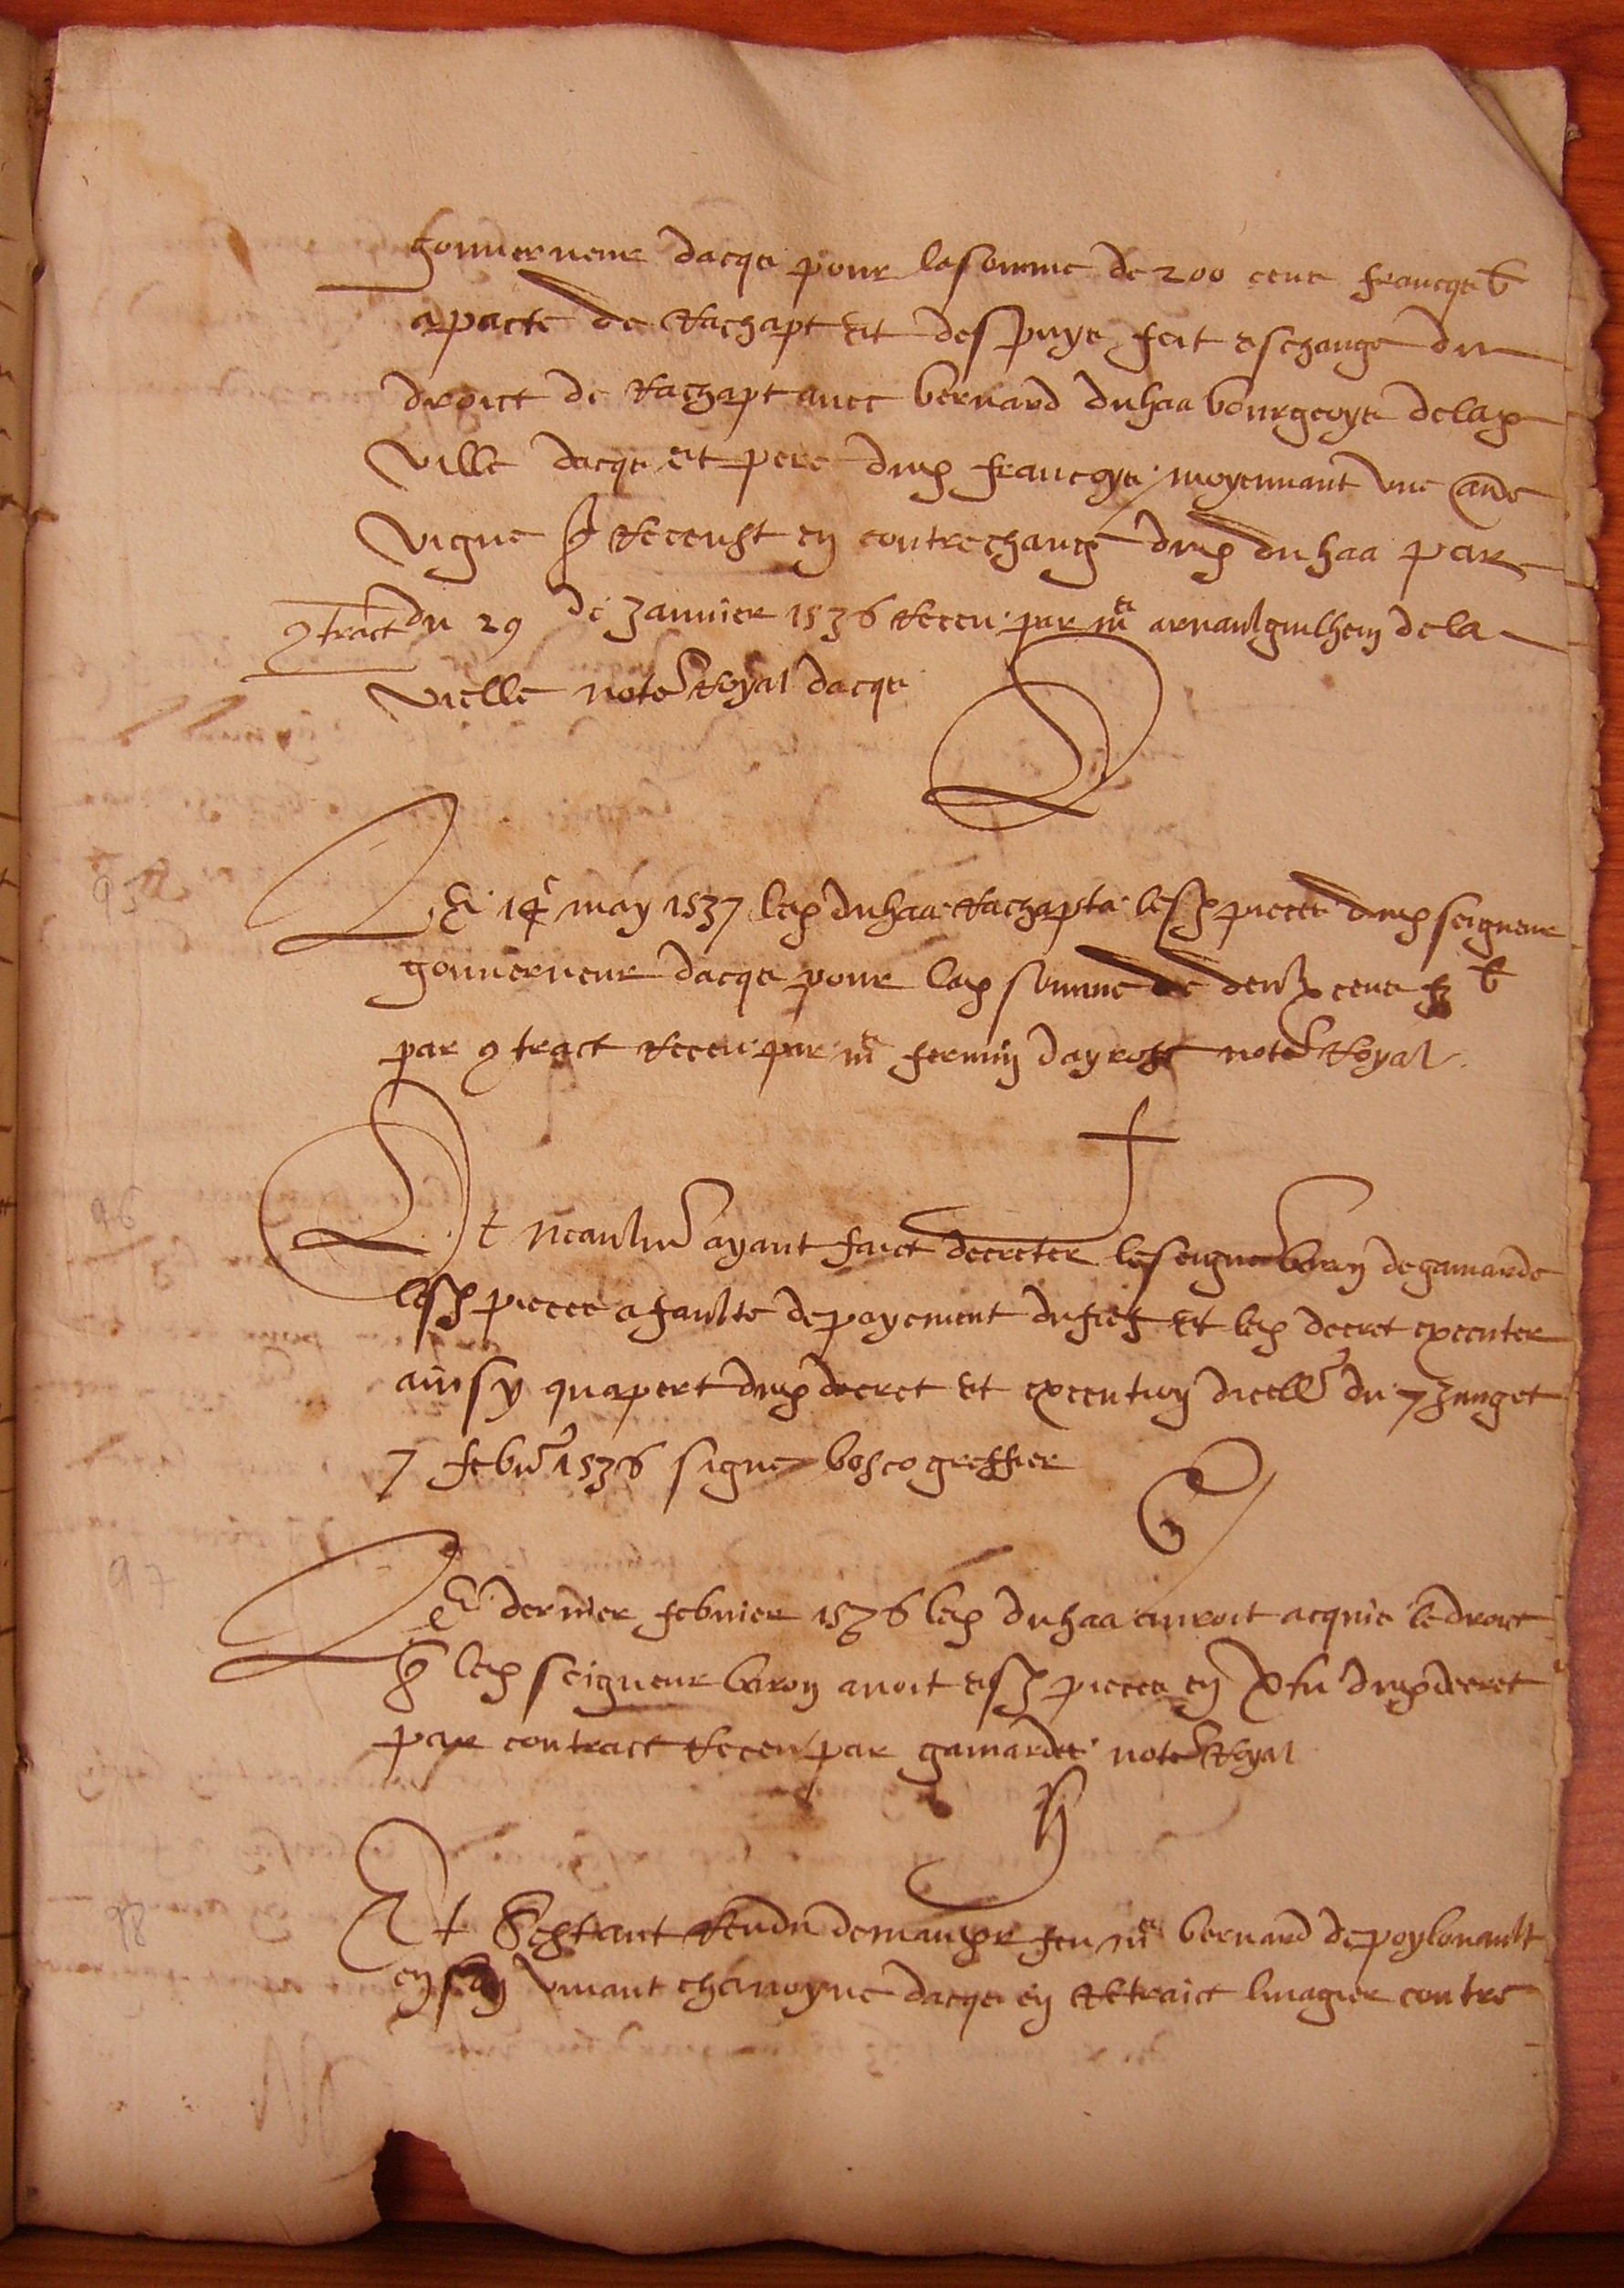 gouverneur dacqs pour la somme de 200 cens francqs b
a pacte de rachapt et despuys feit eschange du
droict de rachapt avec bernard duhaa bourgeoys de lad
ville dacqs et pere dud francoys moyennant une
vigne q receust en contrechange dud duhaa par
contract du 29 de janvier 1536 receu par me arnaulguilhem de la
vielle notre royal dacqs
95
Le 14e may 1537 led duhaa rachapta lesd pieces dud seigneur
gouverneur dacqs pour lad somme de deux cens fz b
par contract receu par me fermin dayrose notre royal
96
Et neaulmr ayant faict decreter le seigner baron de gamarde
lesd pieces a faulte de payement du fief et led decret executer
ainsy quapert dud decret et execution dicelle du 7 jung et
7 febver 1536 signe bosco greffier
97
Le dernier febvrier 1536 led duhaa auroit acquis le droict
q led seigneur baron avoit esd pieces en vertu dud decret
par contract receu par gamardes notre royal
98
Et sestant rendu demandr feu me bernard de poylouault
en son vivant chanoyne dacqs en retraict linagier contre